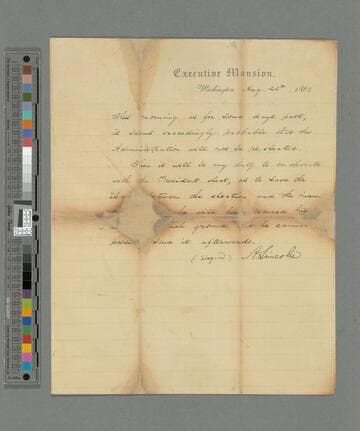 Executive Mansion,
Washington, Aug. 23rd 186
This morning as for some days past,
it seems exceedingly probable that this
Administration will not be re-elected.
Then it will be my duty to so cooperate
with the President elect, as to save the
between the election and the inau
he will have secured his
such ground he cannot
save it afterwards.
(Signed) A. Lincoln